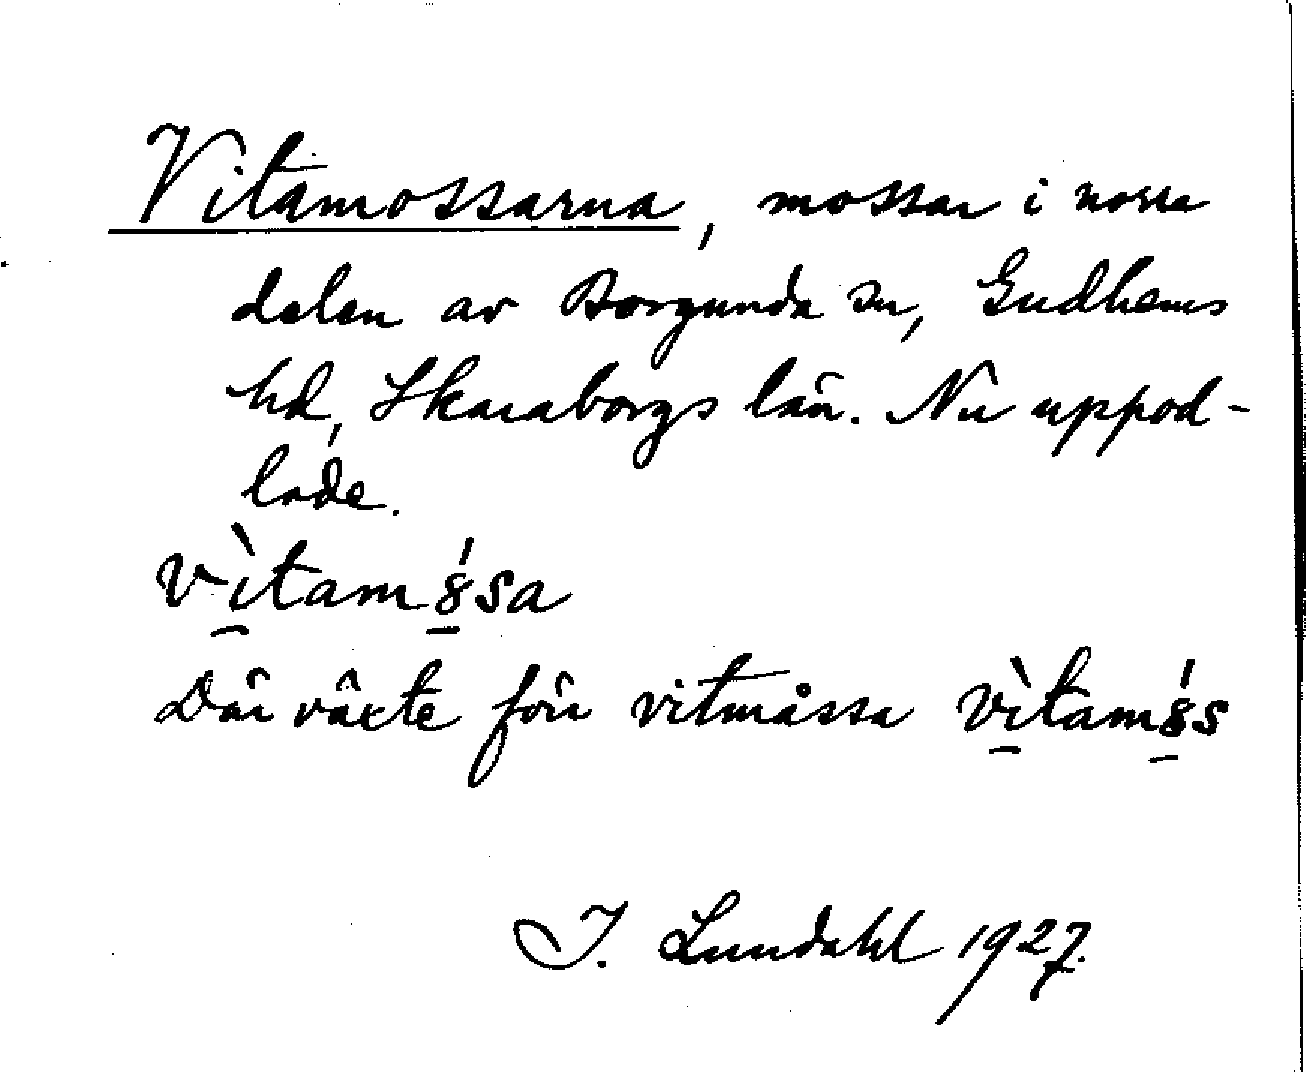 Vitamossarna, mossar i norra
delen av Borgunda sn, Gudhems
hd, Skaraborgs län. Nu uppod-
lade.
vìtam8́sa
Där växte förr vitmåssa vìtam8́s
I. Lundahl 1927.